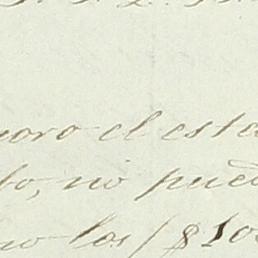 noro el esta
to, ni pued
no los $10